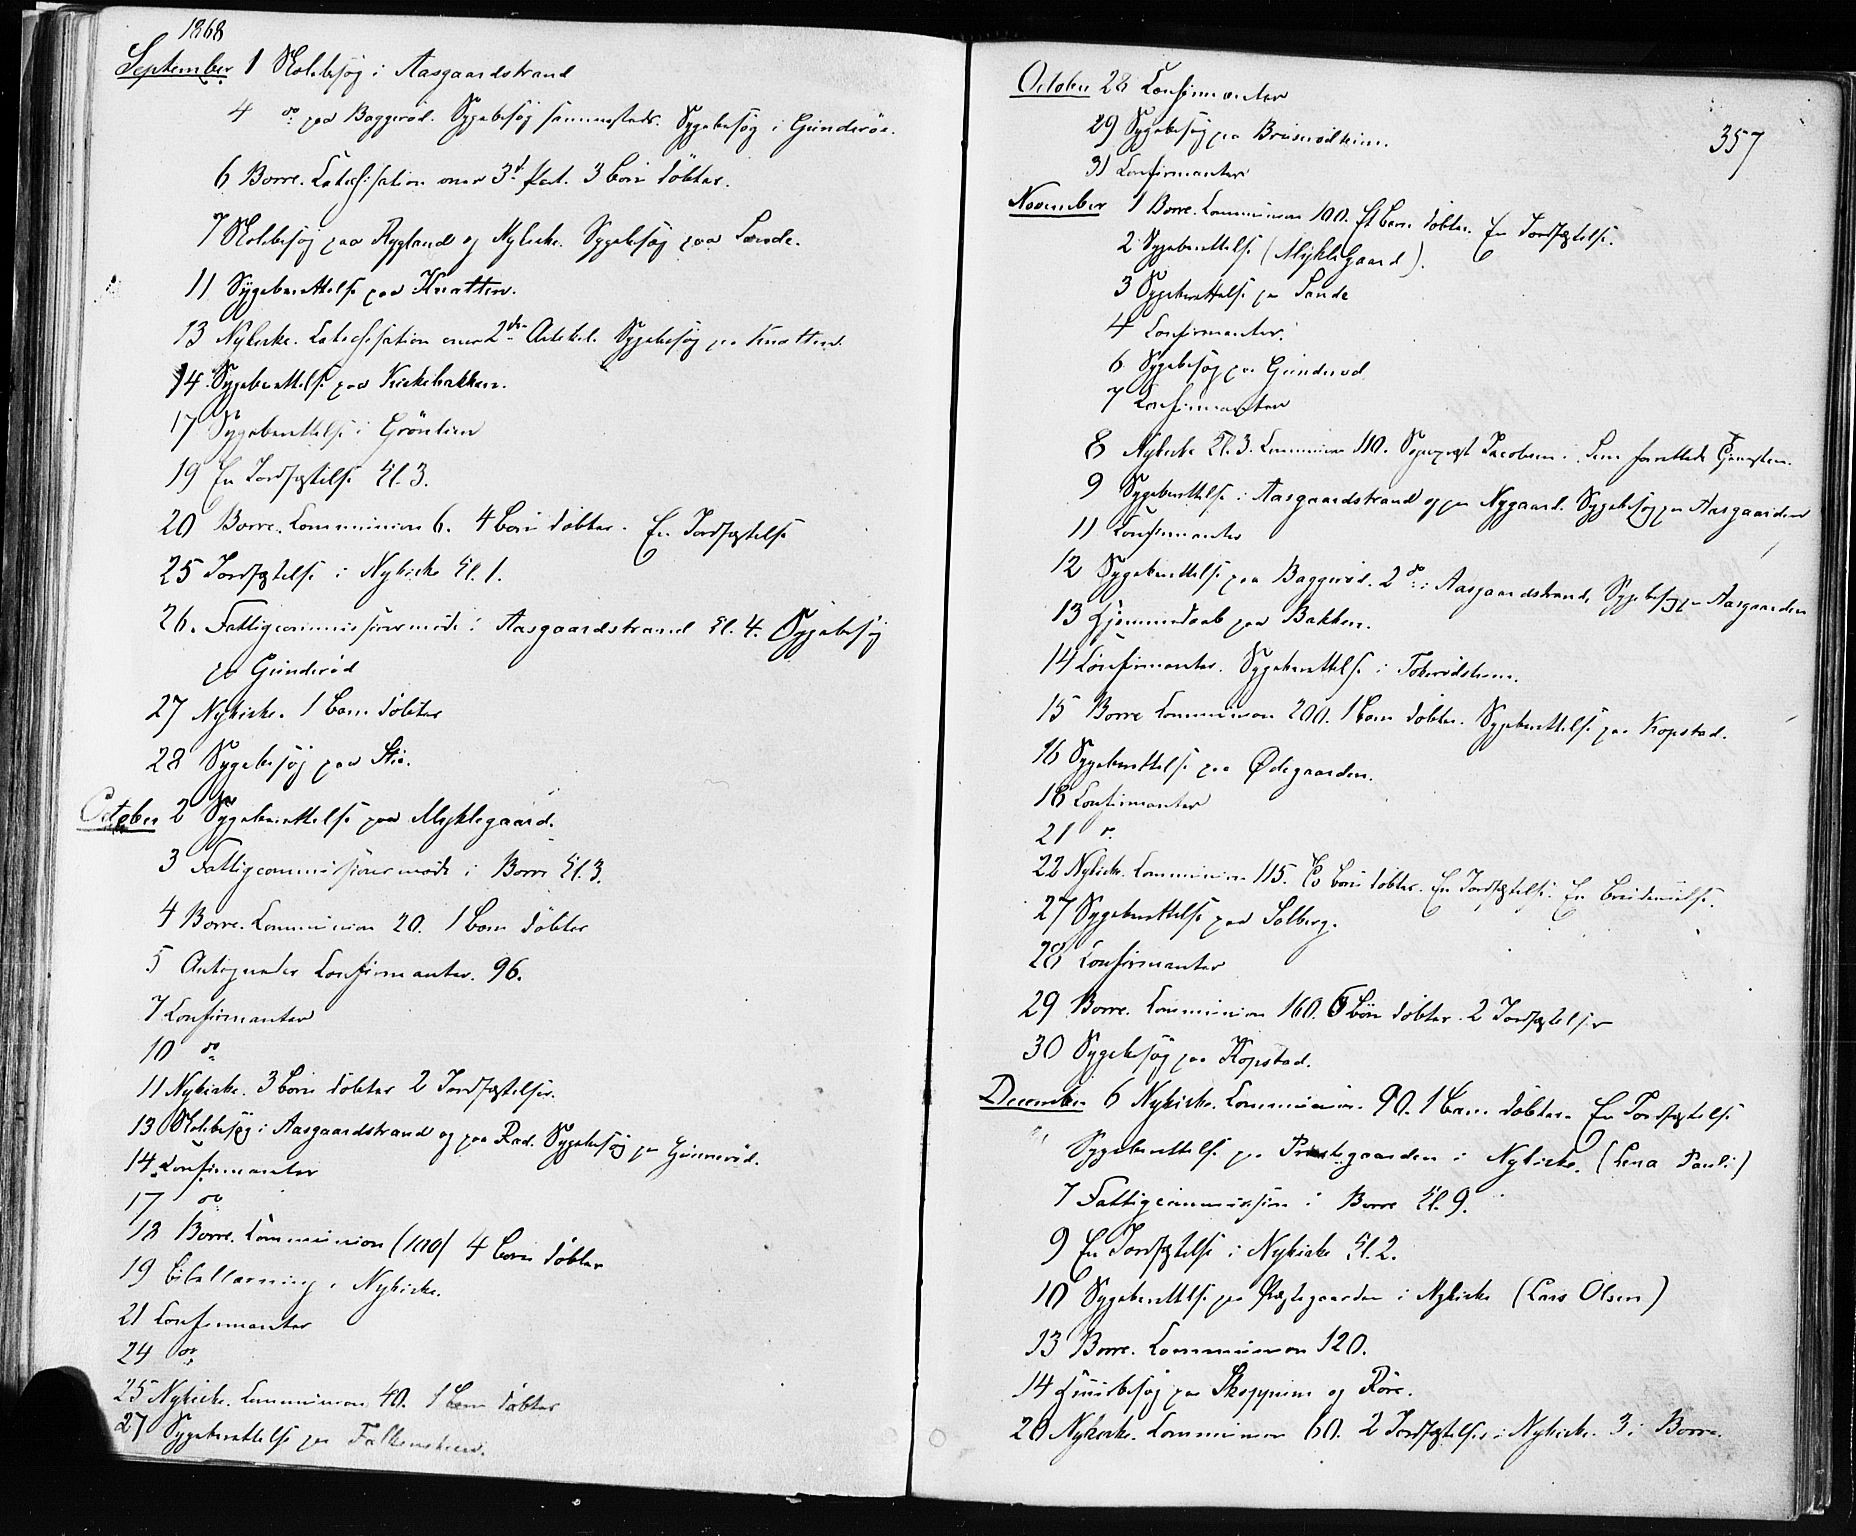 1868
September 1 Skolebesøg i Aasgaardstrand
4 do paa Baggerød. Sygebesøg sammesteds. Sygebesøg i Gunderød.
6 Borre. Catechisation over 3d Part. 3 Børn døbter.
7 Skolebesøg paa Rygland og Nykirke. Sygebesøg paa Sande.
11 Sygeberettelse paa Knatten.
13 Nykirke. Catechisation over 2den Artikel. Sygebesøg paa Knatten.
14 Sygeberettelse paa Kirkebakken.
17 Sygeberettelse i Grønlien
19 En Jordfæstelse Kl. 3.
20 Borre. Communion 6. 4 Børn døbter. En Jordfæstelse
25 Jordfæstelse i Nykirke Kl. 1.
26. Fattigcommissionsmøde i Aasgaardstrand Kl. 4. Sygebesøg
paa Gunderød
27 Nykirke. 1 Barn døbter
28 Sygebesøg paa Stie.
October 2 Sygeberettelse paa Myklegaard.
3 Fattigcommissionsmøde i Borre Kl. 3.
4 Borre. Communion 20. 1 Barn døbter
5 Antegnede Confirmanter. 96.
7 Confirmanter
10 do
11 Nykirke. 3 Børn døbter 2 Jordfæstelser.
13 Skolebesøg i Aasgaardstrand og paa Rød. Sygebesøg paa Gunnerød.
14 Confirmanter
17 do
18 Borre. Communion (100) 4 Børn døbter
19 Bibellæsning i Nykirke.
21 Confirmanter
24 do
25 Nykirke. Communion 40. 1 Barn døbter
27 Sygeberettelse paa Falkensteen.
October 28 Confirmanter
357
29 Sygebesøg paa Bruserødeien.
31 Confirmanter
November 1 Borre. Communion 100. Et Barn døbter. En Jordfæstelse.
2 Sygeberettelse (Myklegaard).
3 Sygeberettelse paa Sande
4 Confirmanter.
6 Sygebesøg paa Gunderød
7 Confirmanter
8 Nykirke Kl. 3. Communion 110. Sognepræst Jacobsen i Sem forrettede Tjenesten.
9 Sygeberettelse i Aasgaardstrand og paa Nygaard. Sygebesøg paa Aasgaarden
11 Confirmanter
12 Sygeberettelse paa Baggerød. 2 do i Aasgaardstrand. Sygebesøg paa Aasgaarden
13 Hjemmedaab paa Bakken.
14 Confirmanter. Sygeberettelse i Tokerødskoven.
15 Borre Communion 200. 1 Barn døbter. Sygeberettelse paa Kopstad.
16 Sygeberettelse paa Ødegaarden.
18 Confirmanter
21 do
22 Nykirke. Communion 115. Børn døbter. En Jordfæstelse. En Brudevielse.
27 Sygeberettelse paa Solberg.
28 Confirmanter
29 Borre. Communion 160. 6 Børn døbter. 2 Jordfæstelser
30 Sygebesøg paa Kopstad.
December 6 Nykirke. Communion 90. 1 Barn døbter. En Jordfæstelse
Sygeberettelse paa Præstegaarden i Nykirke. (Lena Pauli)
7 Fattigcommission i Borre Kl. 9.
9 En Jordfæstelse i Nykirke Kl. 2.
10 Sygeberettelse paa Præstegaarden i Nykirke (Lars Olsen)
13 Borre. Communion 120.
14 Huusbesøg paa Skoppum og Røre.
20 Nykirke. Communion 60. 2 Jordfæstelser i Nykirke. 3 i Borre.